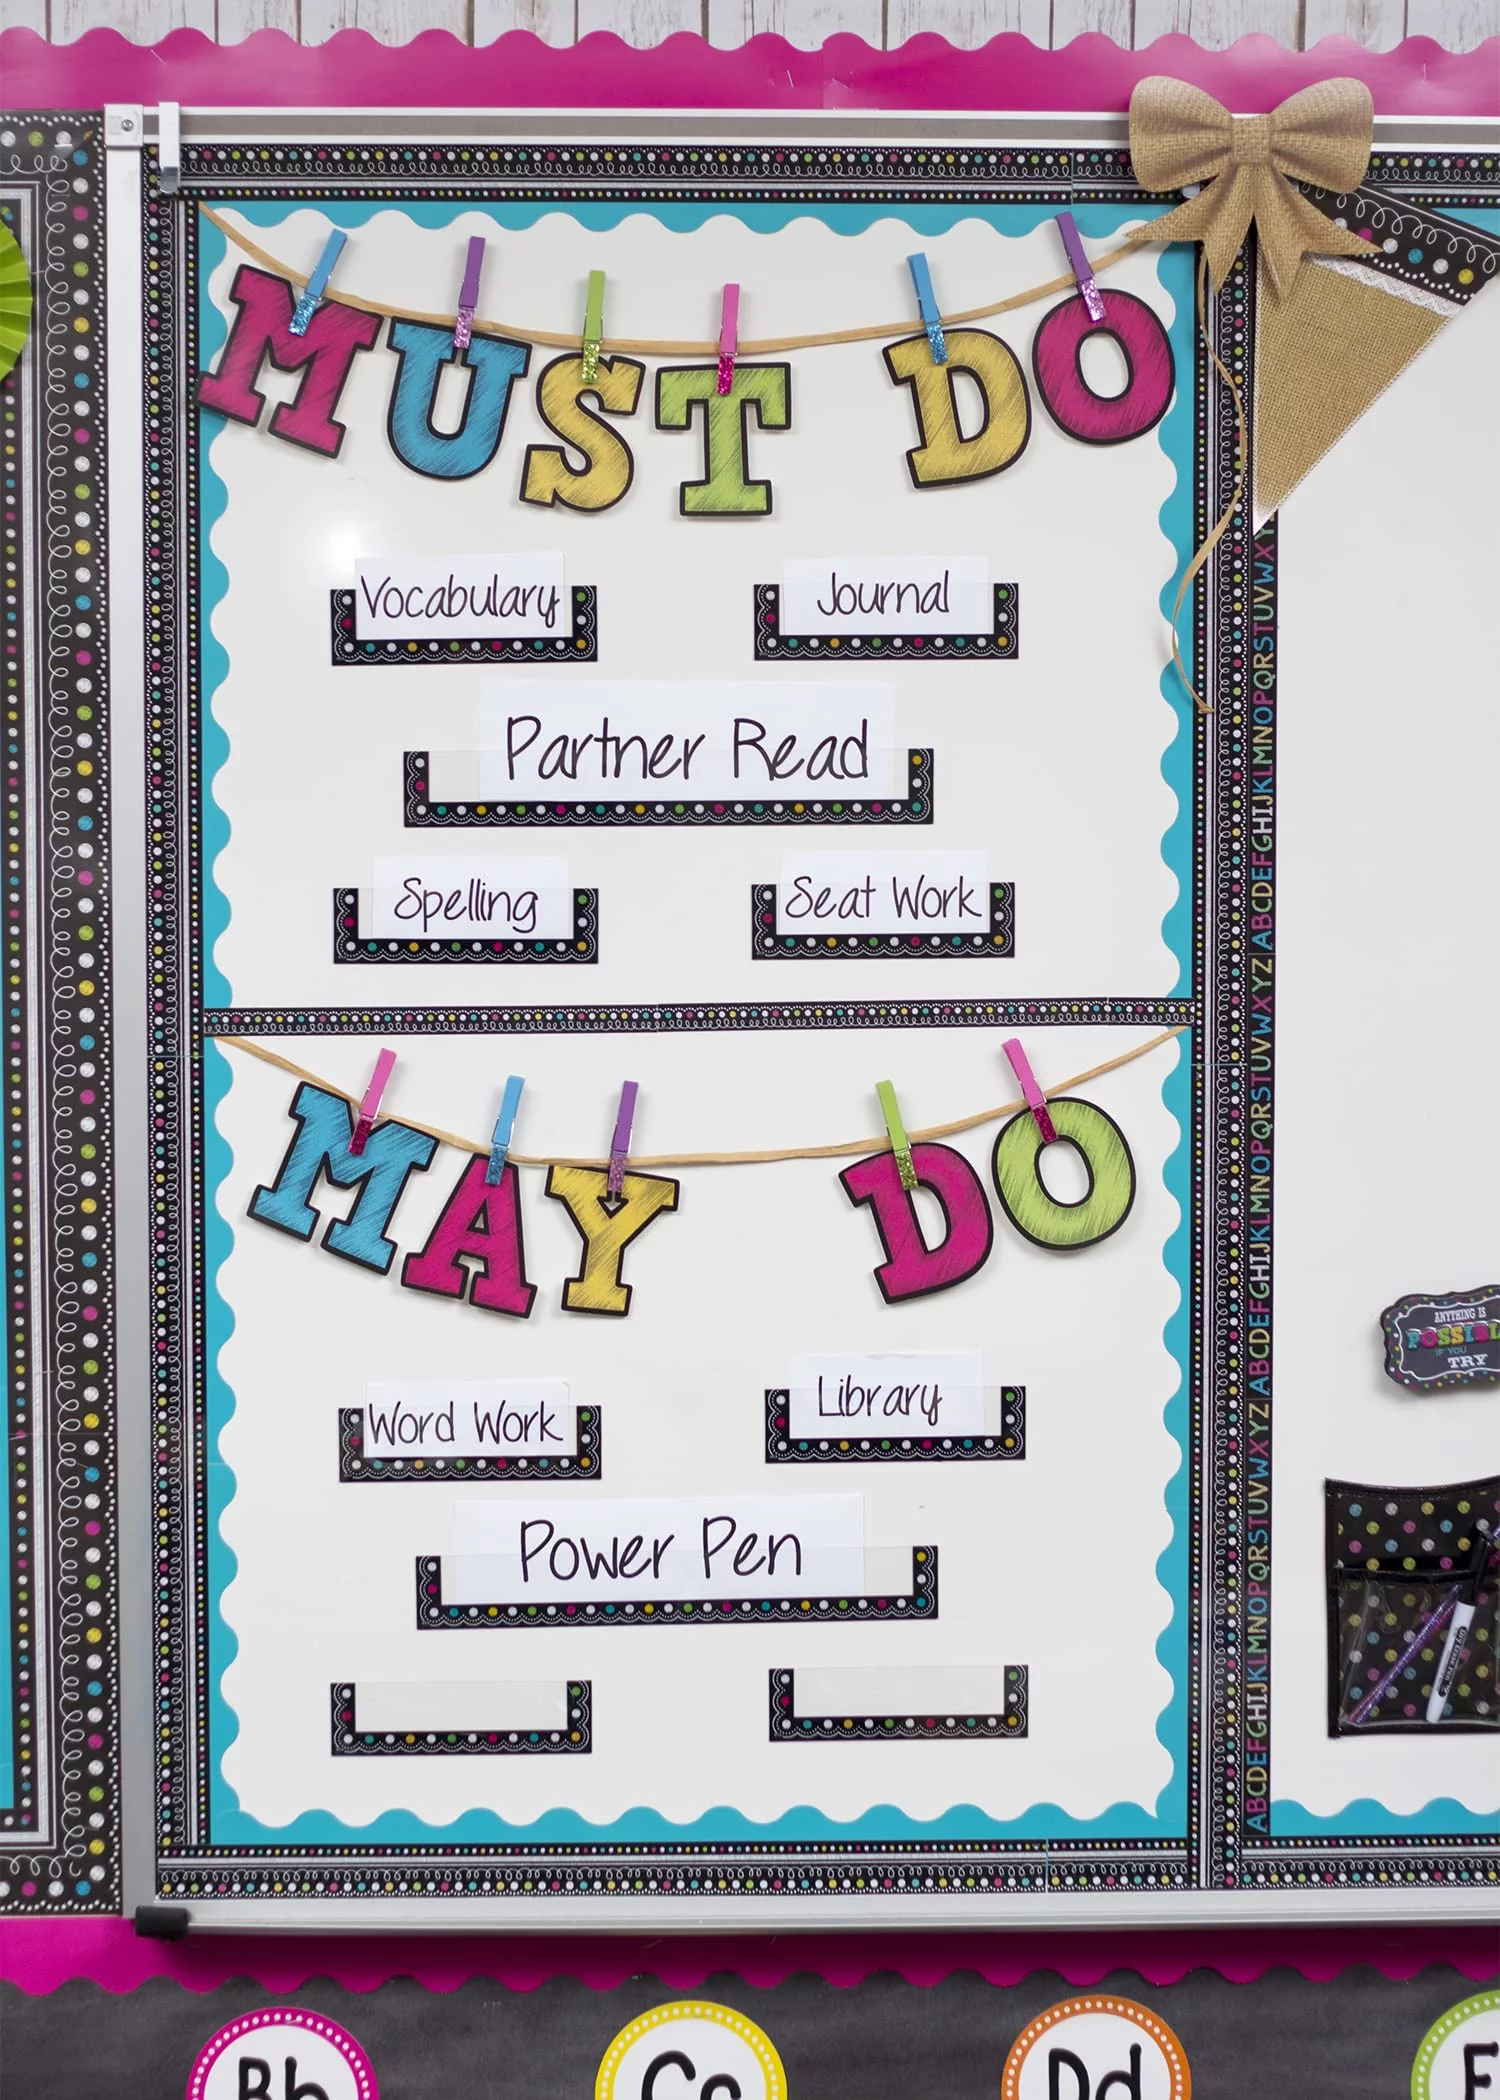 MUST DO
Vocabulary
Journal
Partner Read
Spelling
Seat Work
MAY DO
Word Work
Library
Power Pen
ABCDEFGHIJKLMNOPQRSTUVWXYZ
ABCDEFGHIJKLMNOPQRSTUVWXYZ
ABCDEFGHIJKLMNOPQRSTUVWXY
ANYTHING IS
POSSIBL
IF YOU
TRY
Bb
Cc
Dd